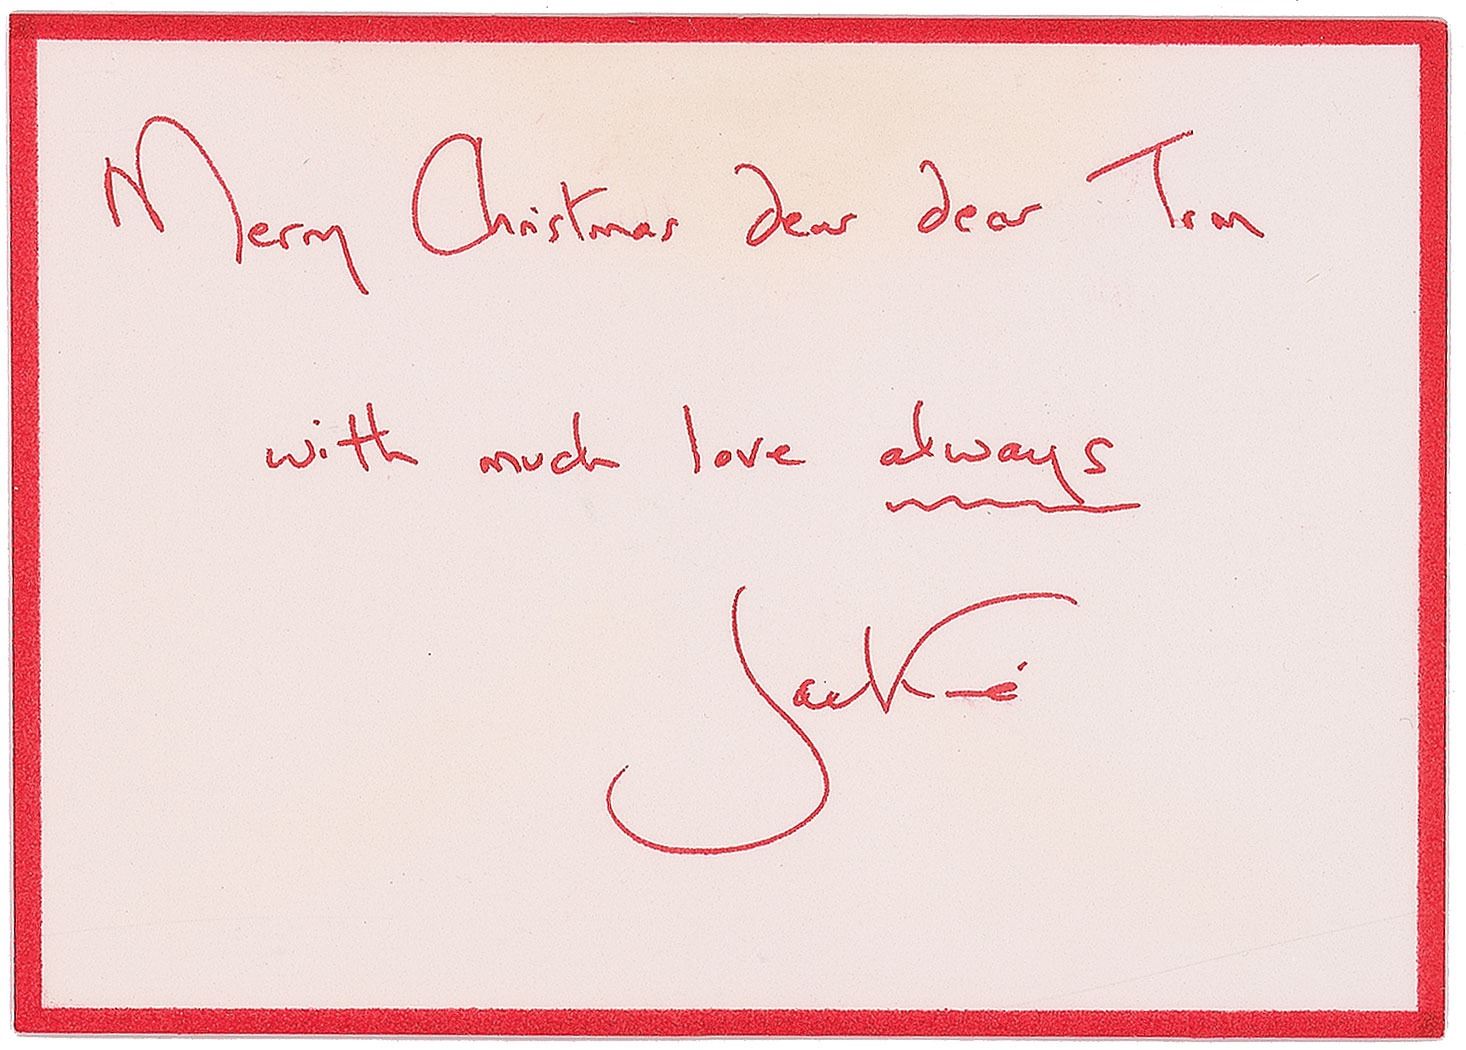 Merry Christmas dear dear Tom
with much love always
Jackie